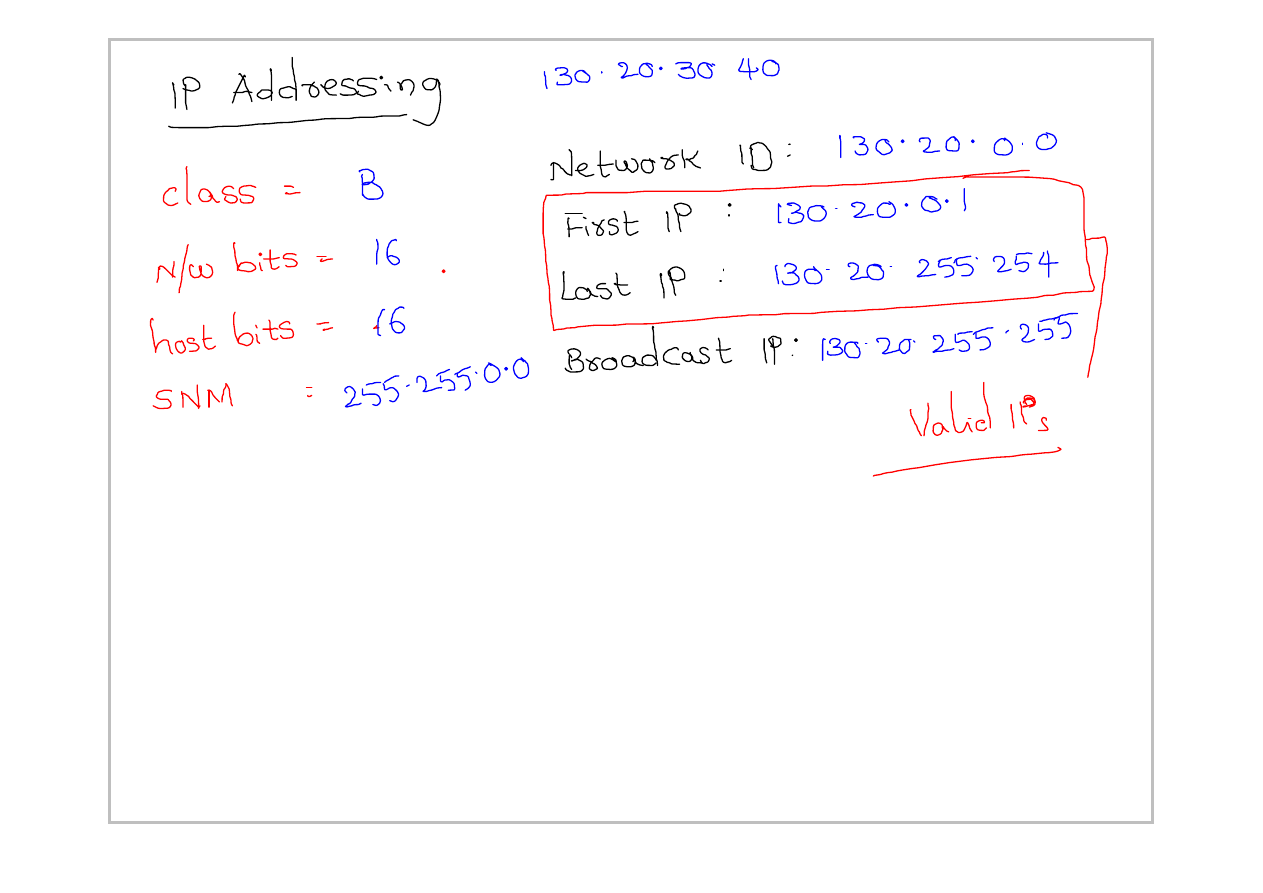 IP Addressing
130.20.30 40
class = B
N/W bits = 16
host bits = 16
SNM : 255.255.0.0
Network ID: 130.20.0.0
First IP : 130.20.0.1
Last IP : 130.20.255.254
Broadcast IP: 130.20.255.255
Valid IPs